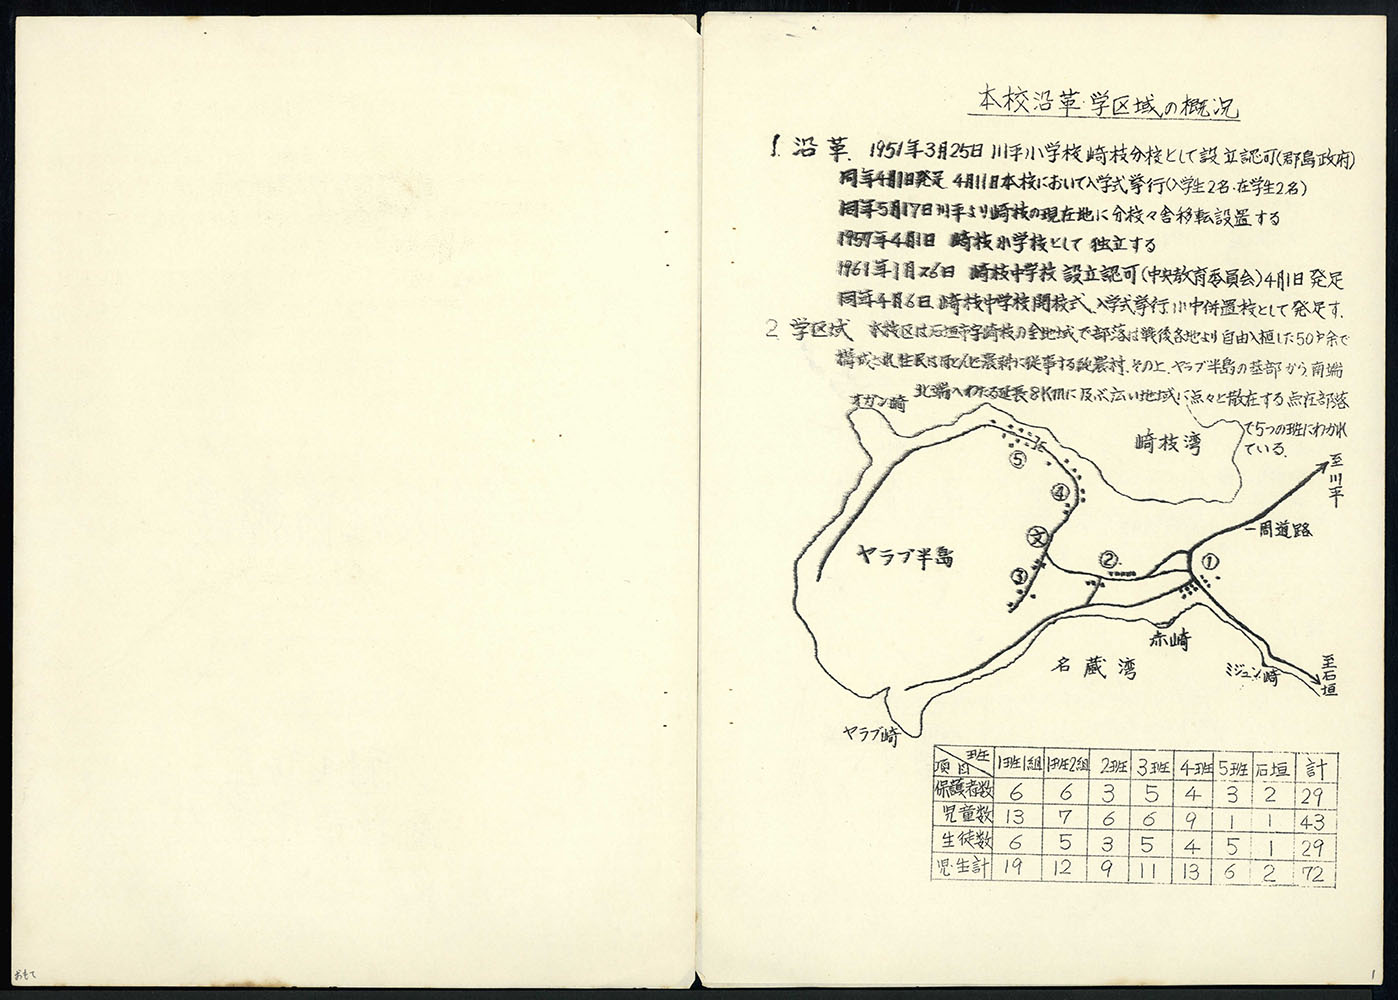 本校沿革・学区域の概況
1. 沿革. 1951年3月25日 川平小学校崎枝分校として設立認可(郡島政府)
同年4月1日発足 4月11日本校において入学式挙行(入学生2名.在学生2名)
同年5月17日川平より崎枝の現在地に分校々舎移転設置する
1957年4月1日 崎枝小学校として 独立する
1961年1月26日 崎枝中学校 設立認可(中央教育委員会)4月1日 発足
同年4月6日 崎枝中学校開校式、入学式挙行 小中併置校として発足す.
2 学区域 本校区は石垣市字崎枝の全地域で部落は戦後各地より自由入植した50戸余で
構成され住民はほとんど農耕に従事する純農村.その上.ヤラブ半島の基部から南端
北端へわたる延長8Kmに及ぶ広い地域に点々と散在する点在部落
で5つの班にわかれ
ている.
オガン崎
崎枝湾
至川平
一周道路
⑤
④
文
③
②
①
ヤラブ半島
赤崎
名蔵湾
ミジュン崎
至石垣
ヤラブ崎
項目 班 1班1組 1班2組 2班 3班 4班 5班 石垣 計
保護者数 6 6 3 5 4 3 2 29
児童数 13 7 6 6 9 1 1 43
生徒数 6 5 3 5 4 5 1 29
児・生計 19 12 9 11 13 6 2 72
おもて
1